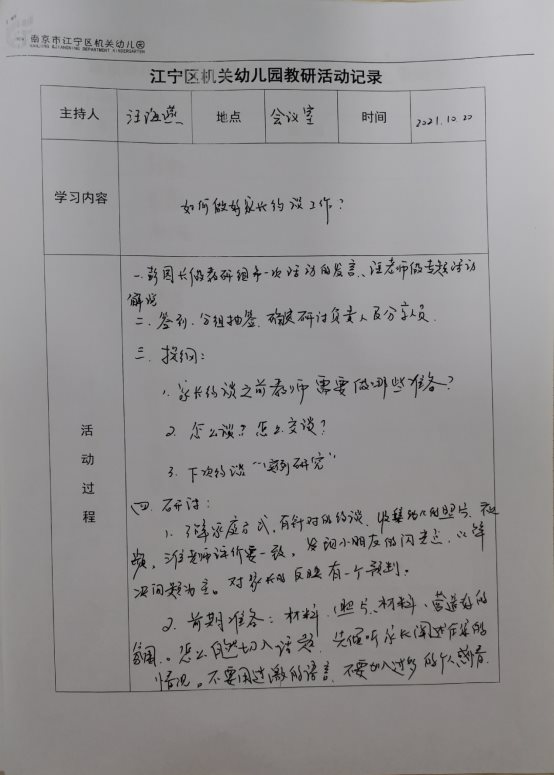 南京市江宁区机关幼儿园
NANJING JIANGNING DEPARTMENT KINDERGARTEN
江宁区机关幼儿园教研活动记录
主持人 汪海燕 地点 会议室 时间 2021.10.20
学习内容 如何做好家长约谈工作?
活动过程
一.彭园长做教研组第一次活动的发言、汪老师做专题活动
解说
二、签到、分组抽签、确定研讨负责人及分享人员.
三、提纲:
1. 家长约谈之前教师需要做哪些准备?
2. 怎么谈? 怎么交谈?
3. 下次约谈“案例研究”
四. 研讨:
1. 了解家庭方式,有针对的约谈、收集幼儿的照片、视
频,三位老师评价要一致,发现小朋友的闪光点,以解
决问题为主。对家长的反映有一个预判。
2. 前期准备:材料、照片、材料、营造好的
氛围。怎么自然切入话题,先倾听家长阐述在家的
情况。不要用过激的语言,不要加入过多的个人感情.